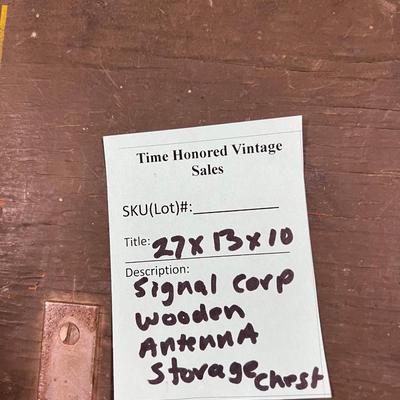 Time Honored Vintage
Sales
SKU(Lot)#:__________
Title: 27x13x10
Description:
Signal Corp
Wooden
Antenna
Storage Chest